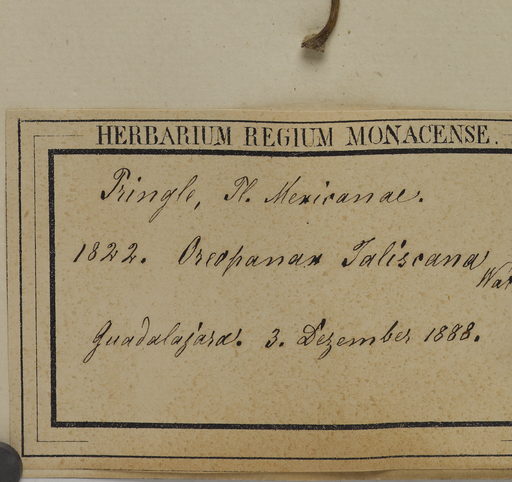 HERBARIUM REGIUM MONACENSE.
Pringle, Pl. Mexicanae.
1822. Oreopanax Jaliscana
Wat
Guadalajara. 3. Dezember 1888.